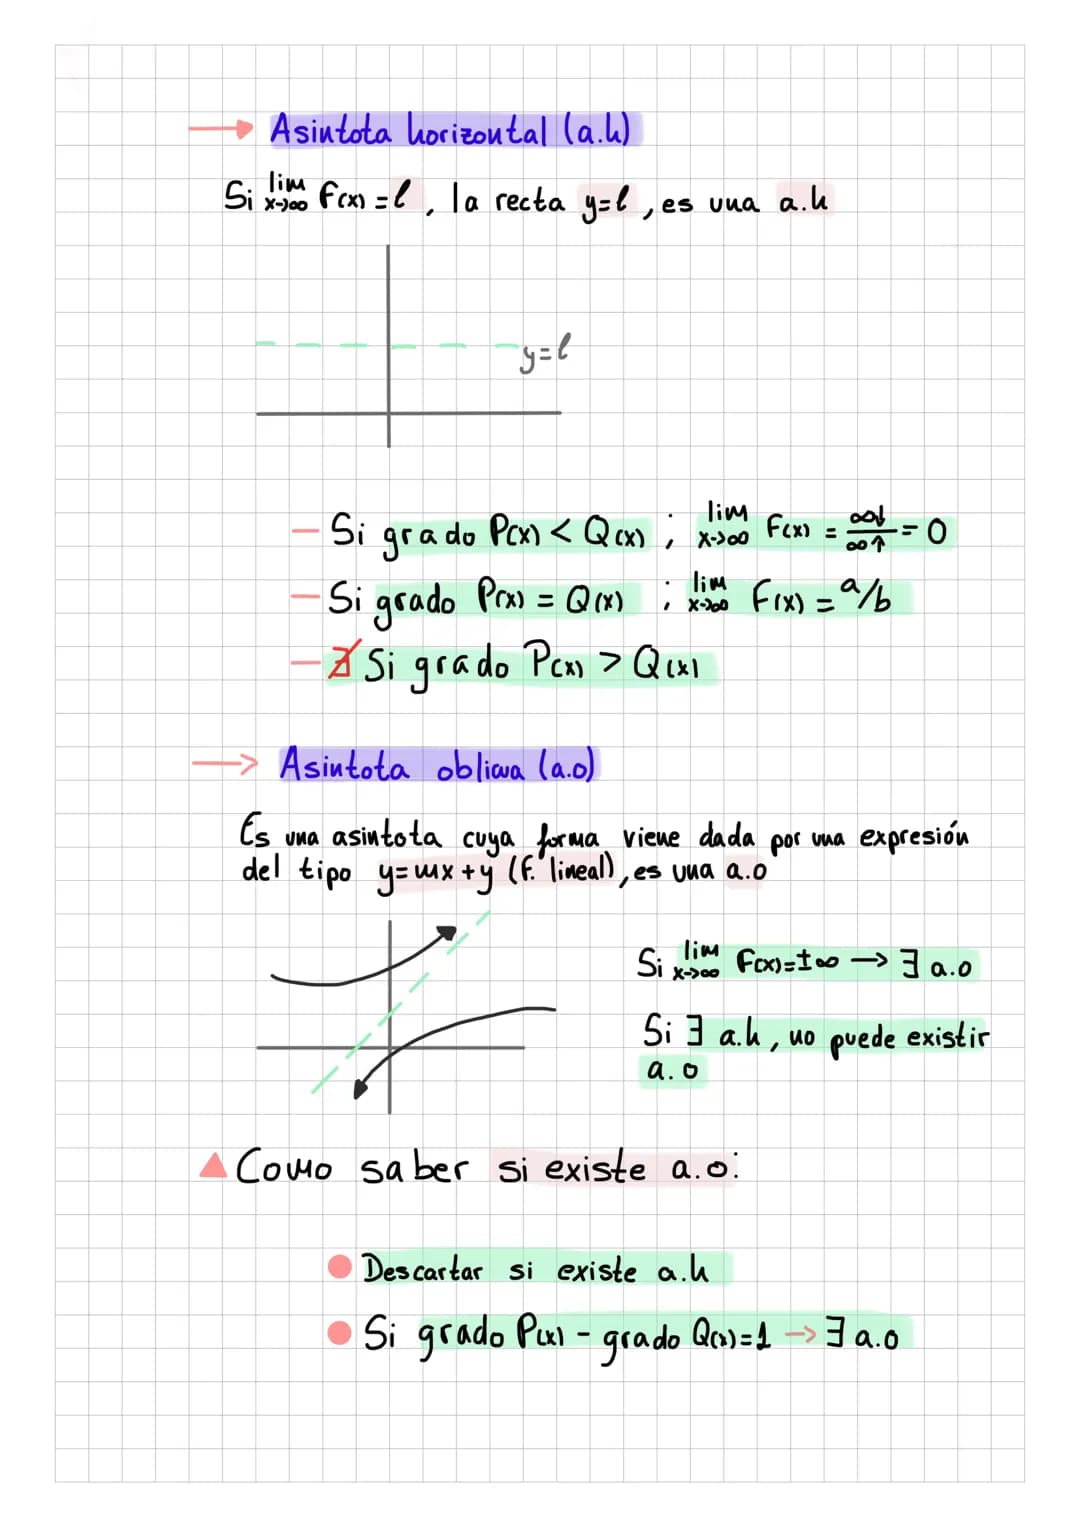 Asintota horizontal (a.h)
Si lim x→∞ F(x) = l , la recta y=l , es una a.h
y=l
— Si grado P(x) < Q(x) ; lim x→∞ F(x) = ∞↓/∞↑ = 0
— Si grado P(x) = Q(x) ; lim x→∞ F(x) = a/b
— ∄ Si grado P(x) > Q(x)
→ Asintota oblicua (a.o)
Es una asintota cuya forma viene dada por una expresión
del tipo y=mx+y (f. lineal), es una a.o
Si lim x→∞ F(x)=±∞ → ∃ a.o
Si ∃ a.h, no puede existir
a.o
Como saber si existe a.o:
Descartar si existe a.h
Si grado P(x) - grado Q(x)=1 → ∃ a.o